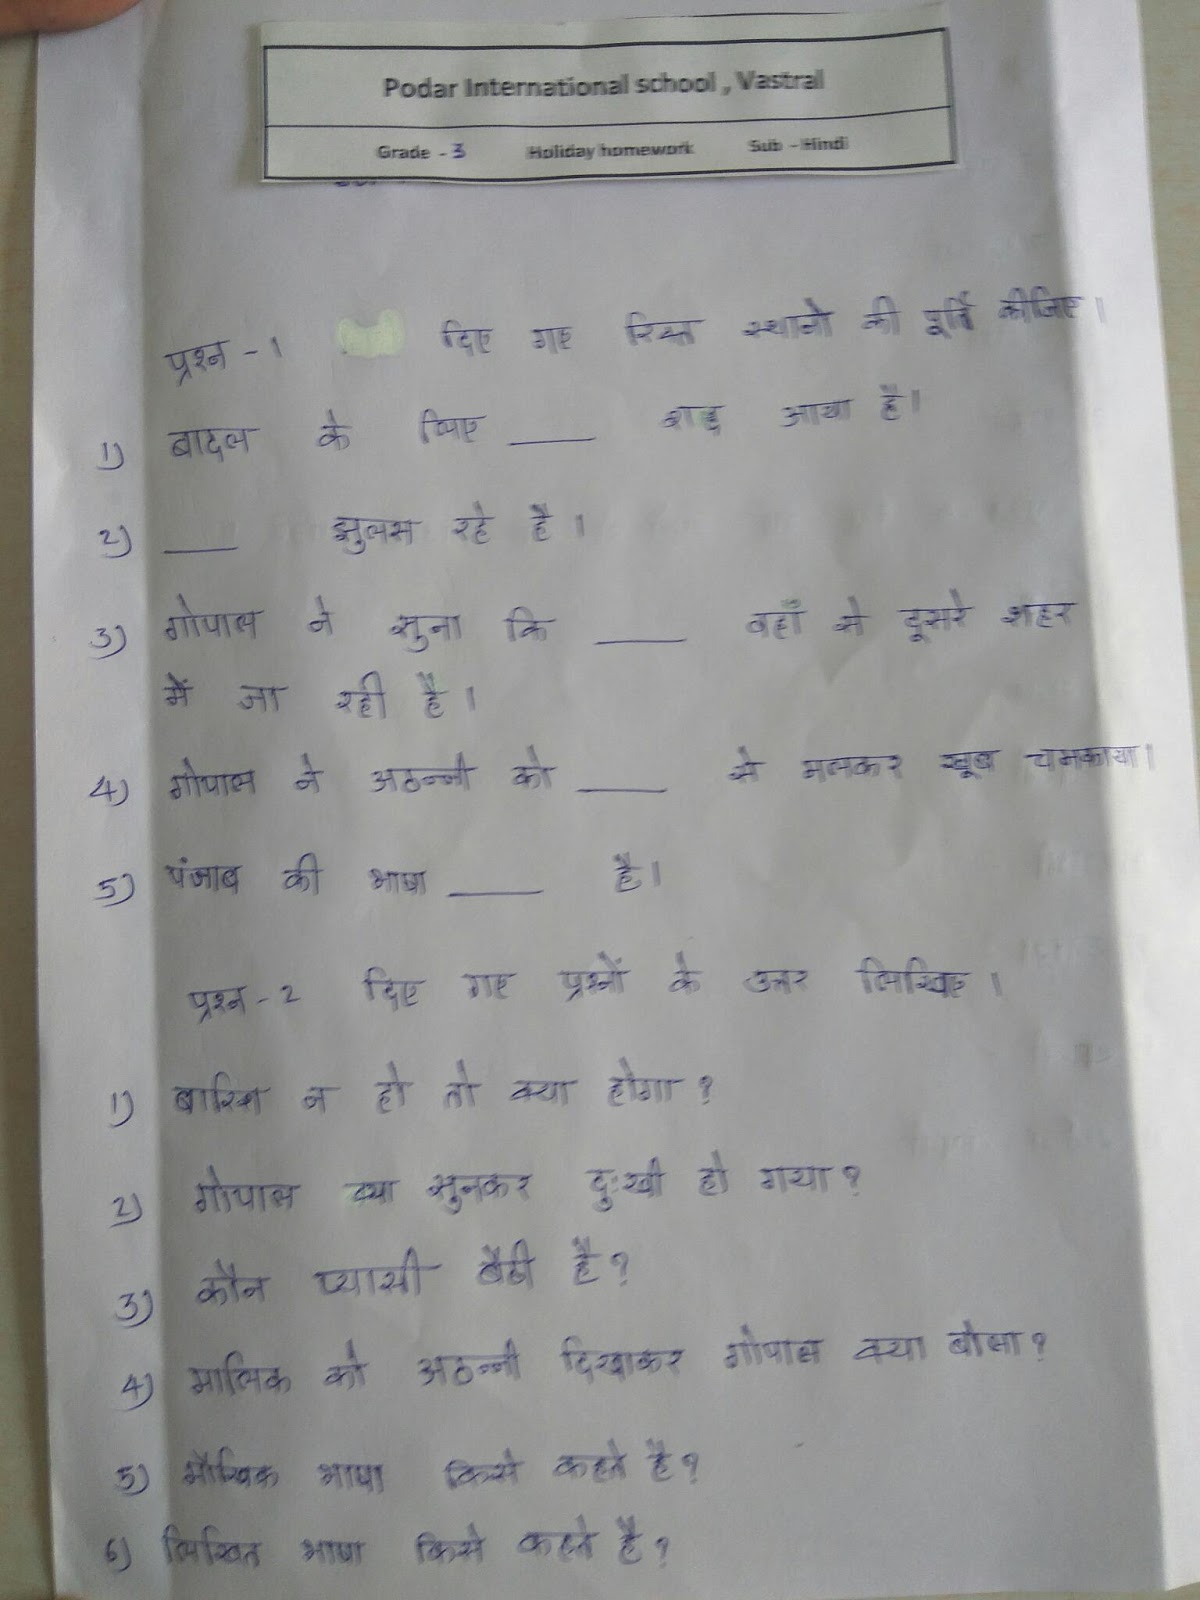 Podar International school , Vastral
Grade - 3 Holiday homework Sub - Hindi
प्रश्न - 1 दिए गए रिक्त स्थानो की पूर्ति कीजिए ।
1) बादल के लिए ___ शब्द आया है।
2) ___ झुलस रहे है ।
3) गोपाल ने सुना कि ___ वहाँ से दूसरे शहर
में जा रही है ।
4) गोपाल ने अठन्नी को ___ से मलकर खूब चमकाया।
5) पंजाब की भाषा ___ है।
प्रश्न - 2 दिए गए प्रश्नों के उत्तर लिखिए ।
1) बारिश न हो तो क्या होगा ?
2) गोपाल क्या सुनकर दुःखी हो गया ?
3) कौन प्यासी बैठी है ?
4) मालिक को अठन्नी दिखाकर गोपाल क्या बोला ?
5) मौखिक भाषा किसे कहते है ?
6) लिखित भाषा किसे कहते है ?